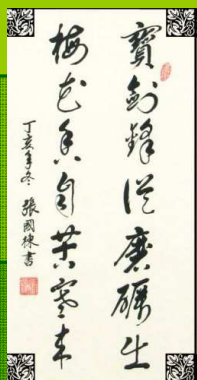 寶劍鋒從磨礪出
梅花香自苦寒來
丁亥年冬 張國棟書